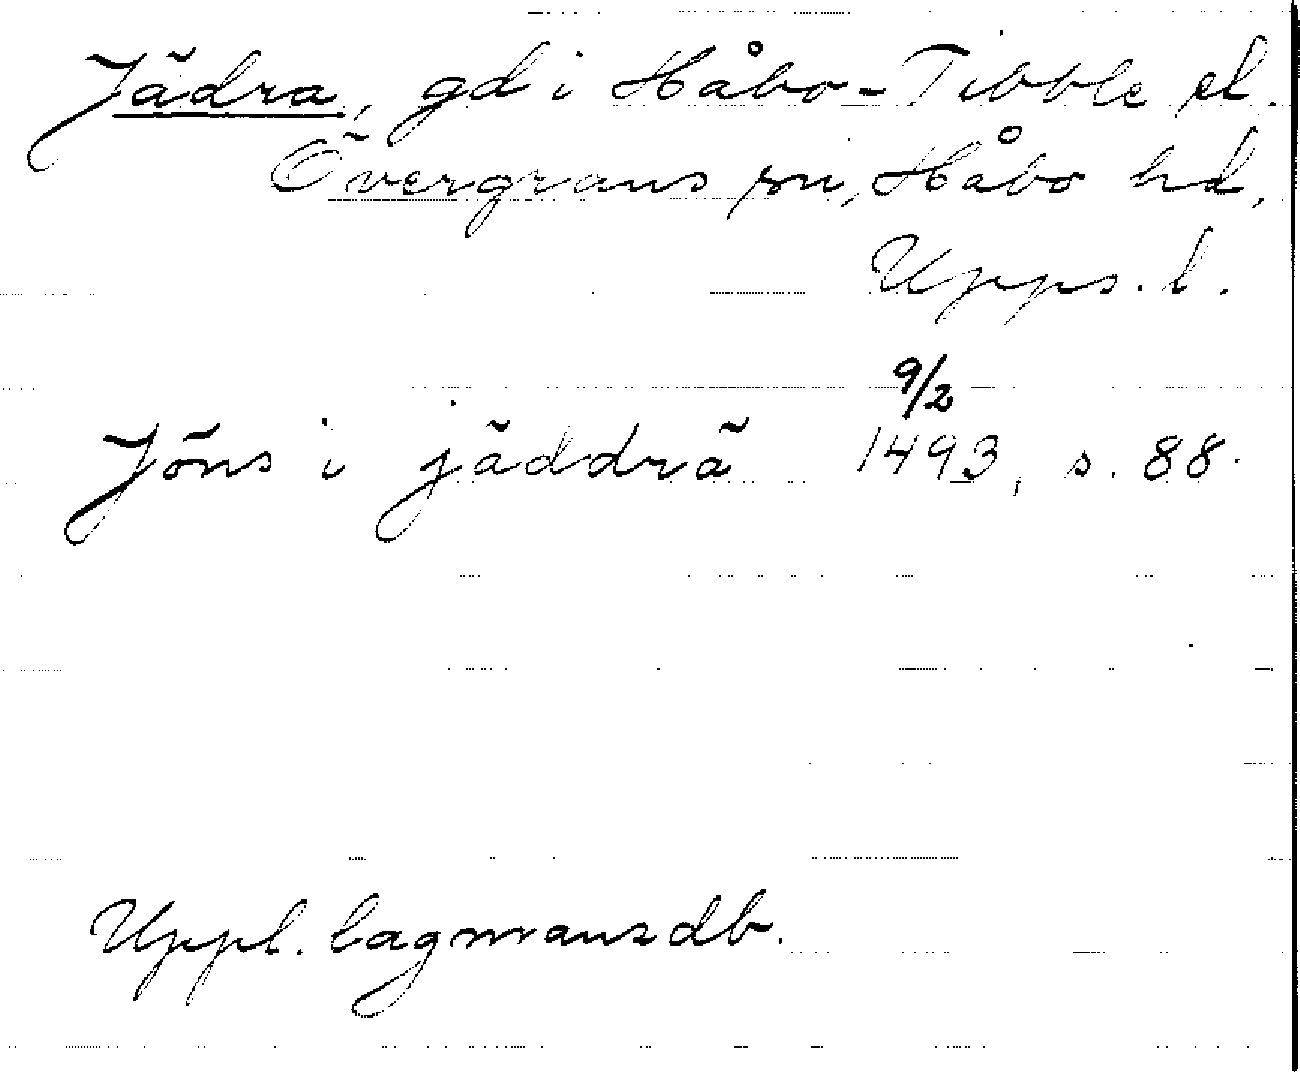 Jädra, gd i Håbo-Tibble el.
Övergrans sn, Håbo hd,
Upps. l.
9/2
Jöns i jäddrä 1493, s. 88.
Uppl. lagmansdb.